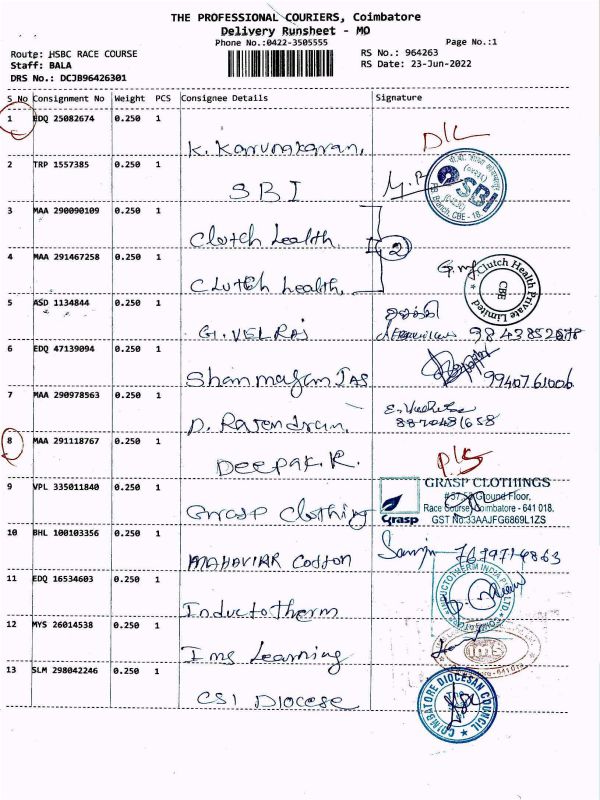 THE PROFESSIONAL COURIERS, Coimbatore
Delivery Runsheet - MO
Phone No.:0422-3505555
Page No.:1
Route: HSBC RACE COURSE
RS No.: 964263
Staff: BALA
RS Date: 23-Jun-2022
DRS No.: DCJB96426301
S No Consignment No Weight PCS Consignee Details Signature
1 EDQ 25082674 0.250 1
K. Karunakaran,
D/L
2 TRP 1557385 0.250 1
SBI
SBI
Branch, CBE - 18.
3 MAA 290090109 0.250 1
Clutch health.
2
4 MAA 291467258 0.250 1
Clutch health.
Clutch Health Private Limited
CBE
5 ASD 1134844 0.250 1
G. VELRAJ
9843852678
6 EDQ 47139094 0.250 1
Shanmugam IAS
9940761006
7 MAA 290978563 0.250 1
D. Rajendran.
8870481658
8 MAA 291118767 0.250 1
Deepak. R.
D/L
9 VPL 335011840 0.250 1
Grasp Clothing
Grasp
GRASP CLOTHINGS
Ground Floor,
Race Course, Coimbatore - 641 018.
GST No:33AAJFG6869L1ZS
10 BHL 100103356 0.250 1
MAHAVIAR Cotton
11 EDQ 16534603 0.250 1
Inductotherm
INDUCTOTHERM INDIA PVT LTD
12 MYS 26014538 0.250 1
Ims Learning
IMS
13 SLM 298042246 0.250 1
CSI DIOCESE
COIMBATORE DIOCESAN COUNCIL